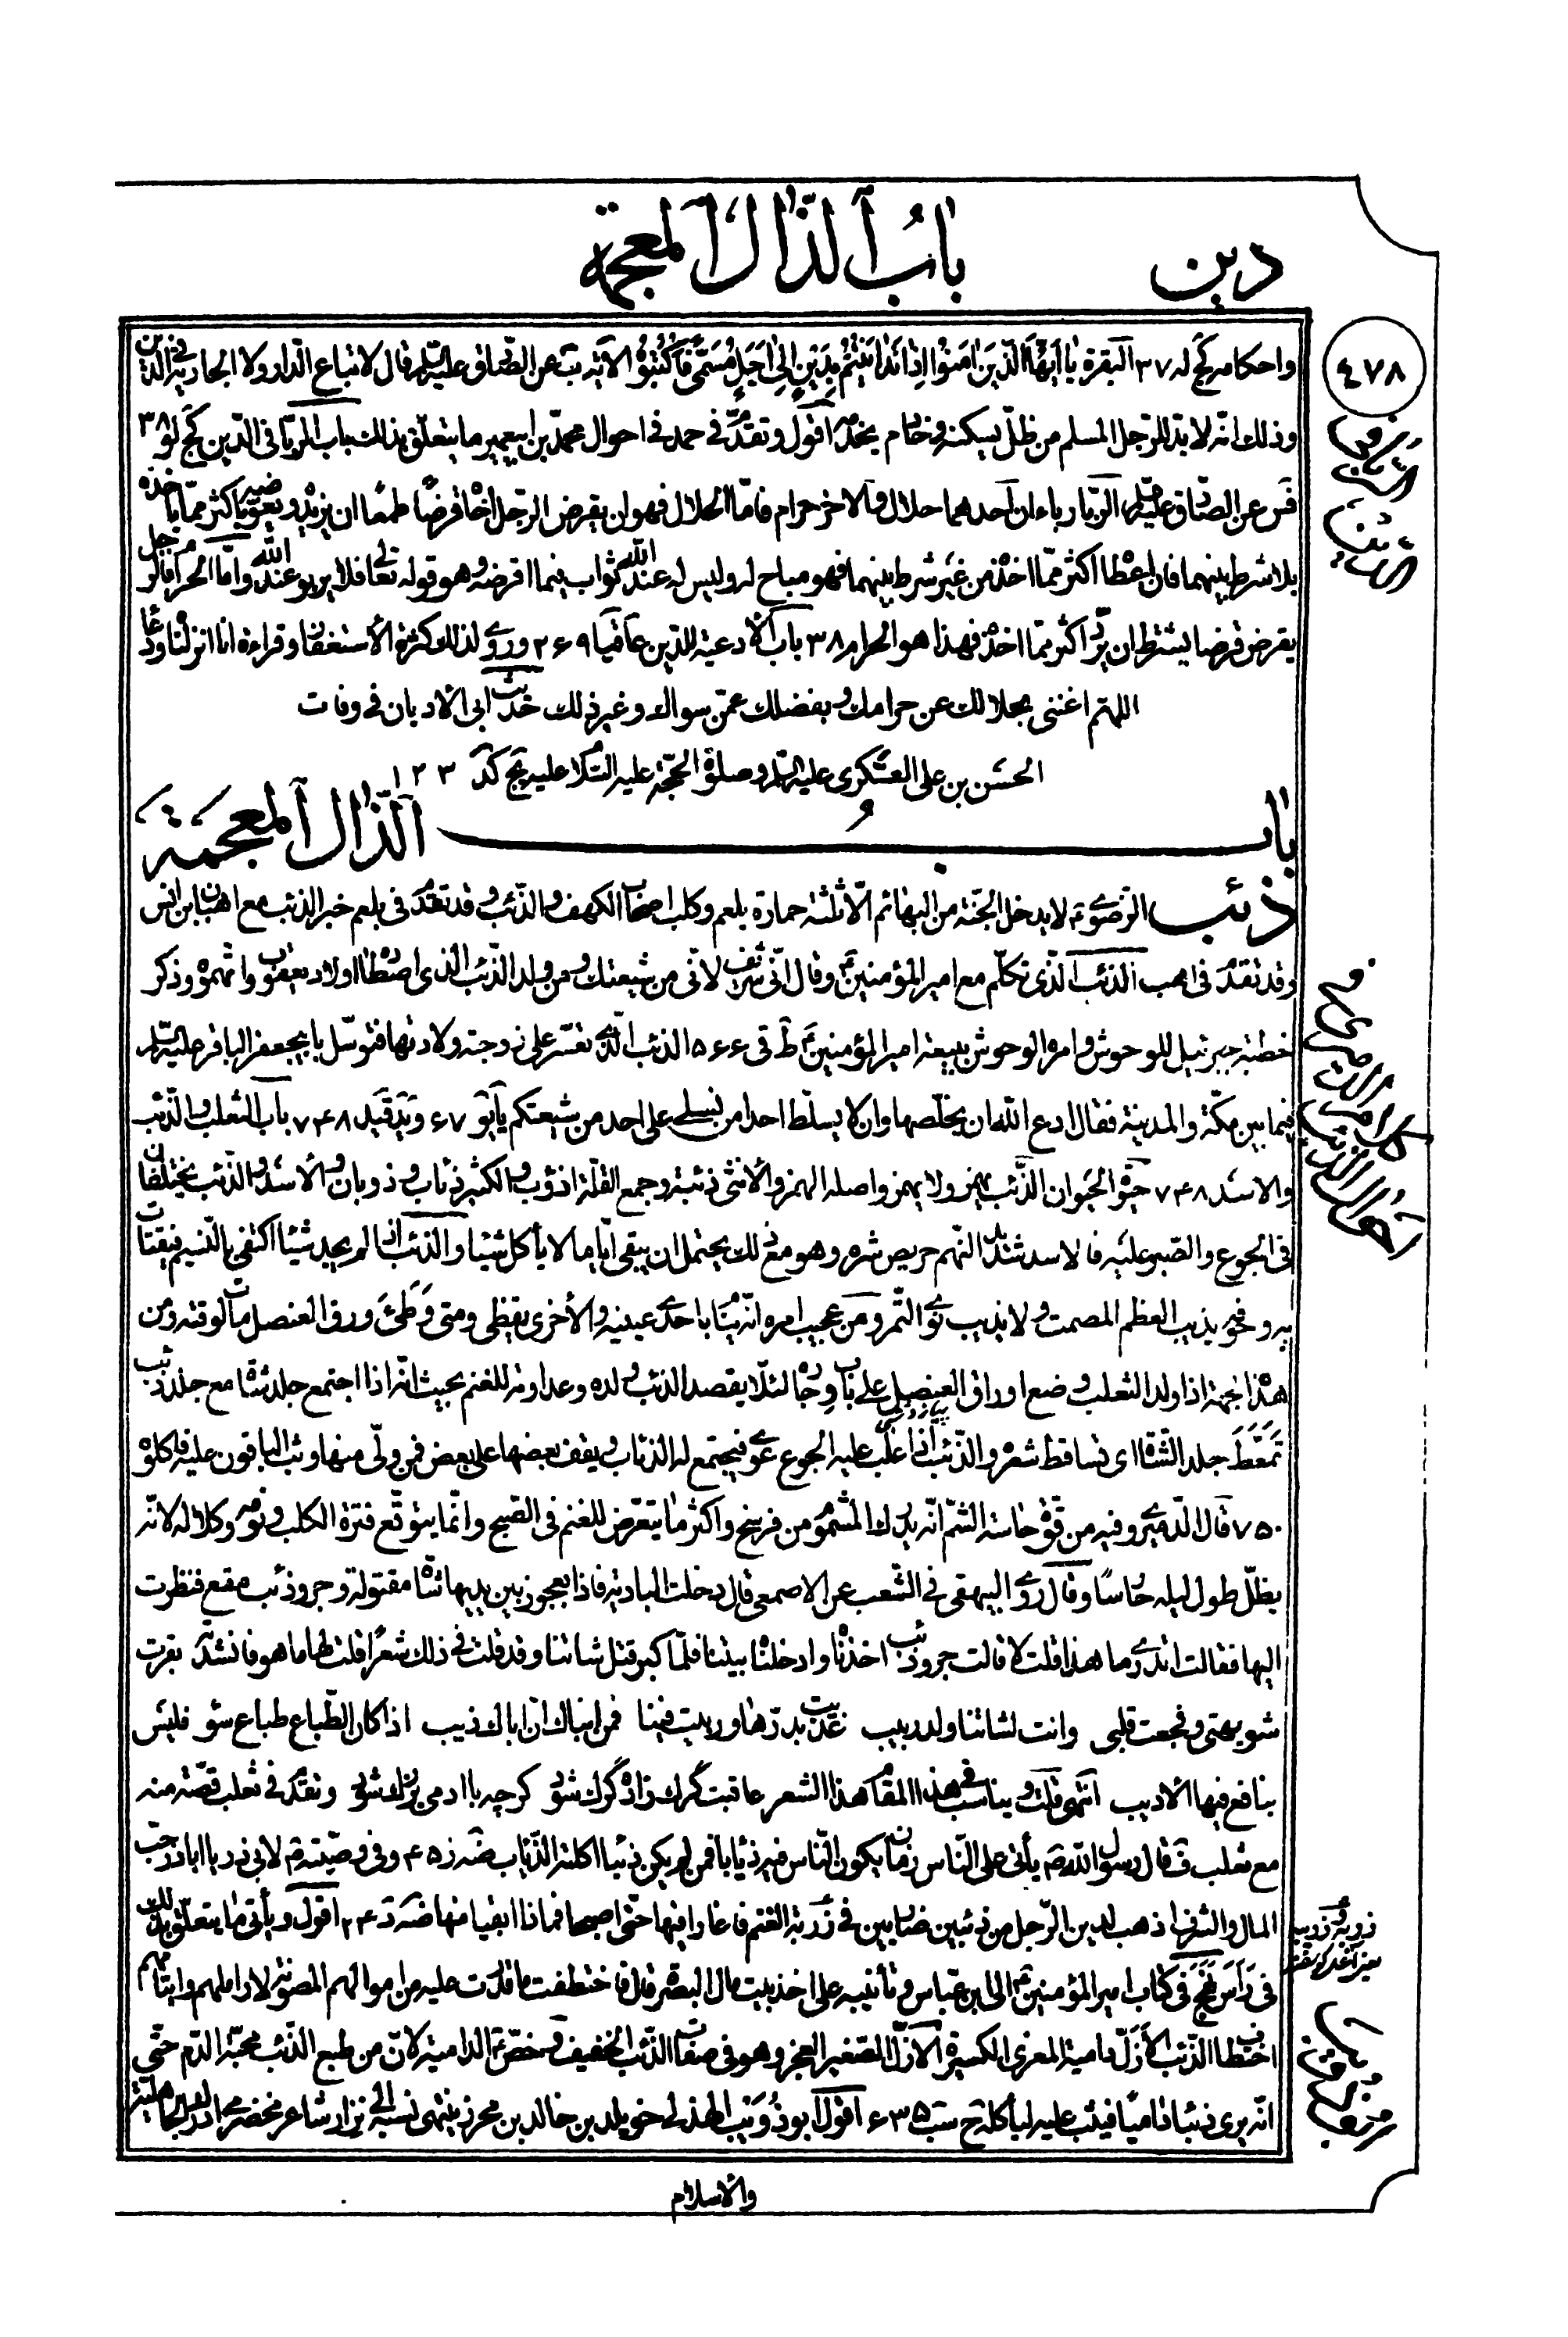 دين
باب الذال المعجمة
٤٧٨
واحكامه كج له ٣٧ البقرة يا ايها الذين امنوا اذا تداينتم بدين الى اجل مسمى فاكتبوه الاية يب عن الصادق عليه السلم قال لا تباع الدار ولا الجارية في الدين
وذلك انه لا بد للرجل المسلم من ظل يسكنه وخادم يخدمه اقول وتقدم في حمد في احوال محمد بن ابي عمير ما يتعلق بذلك باب الربا في الدين كج لو ٣٨
فس عن الصادق عليه السلم الربا رباءان احدهما حلال والاخر حرام فاما الحلال فهو ان يقرض الرجل اخاه قرضا طمعا ان يزيده ويعوضه باكثر مما ياخذه
بلا شرط بينهما فان اعطاه اكثر مما اخذه من غير شرط بينهما فهو مباح له وليس له عند الله ثواب فيما اقرضه وهو قوله تعالى فلا يربو عند الله واما الحرام فالرجل
يقرض قرضا يشترط ان يرد اكثر مما اخذه فهذا هو الحرام ٣٨ باب الادعية للدين عا قيا ٢۶٩ وروى لذلك كثرة الاستغفار وقراءة انا انزلناه ودعاء
اللهم اغننى بحلالك عن حرامك وبفضلك عمن سواك وغير ذلك حديث ابى الاديان في وفات
الحسن بن على العسكرى عليه السلم وصلوة الحجة عليه السلام عليه يج كد ١٢٣
باب الذال المعجمة
ذئب الرضوى ع لا يدخل الجنة من البهائم الا ثلثة حمارة بلعم وكلب اصحاب الكهف والذئب وقد تقدم فى بلعم خبر الذئب مع اهبان ابن انس
وقد تقدم فى اهب الذئب الذى تكلم مع امير المؤمنين ع وقال انى شريف لانى من شيعتك ومن ولد الذئب الذى اصطاده اولاد يعقوب واتهموه وذكر
خطبة جبرئيل للوحوش وامره الوحوش ببيعة امير المؤمنين ع ط قى ۵۶۶ الذئب الذى تعسر على زوجته ولادتها فتوسل بابيجعفر الباقر عليه السلم
فيما بين مكة والمدينة فقال ادع الله ان يخلصها وان لا يسلط احدا من نسلى على احد من شيعتكم يا يو ۶٧ ويد قيد ٧۴٨ باب الثعلب والذئب
والاسد ٧۴٨ حيوة الحيوان الذئب يهمز ولا يهمز واصله الهمز والانثى ذئبة وجمع القلة اذؤب والكثير ذئاب وذوبان والاسد والذئب يختلفان
فى الجوع والصبر عليه فالاسد شديد النهم حريص شره وهو مع ذلك يحتمل ان يبقى اياما لا ياكل شيئا والذئب اذا لم يجد شيئا اكتفى بالنسيم فيقتات
به وجوفه يذيب العظم المصمت ولا يذيب نوى التمر ومن عجيب امره انه ينام باحدى عينيه والاخرى يقظى ومتى وطئ ورق العنصل مات لوقته ومن
هذه الجهة اذا ولد الثعلب وضع اوراق العنصل على باب وجاره لئلا يقصد الذئب ولده وعداوته للغنم بحيث انه اذا اجتمع جلد شاة مع جلد ذئب
تمعط جلد الشاة اى تساقط شعره والذئب اذا غلب عليه الجوع عوى فيجتمع له الذئاب ويقف بعضها على بعض فمن ولى منها وثب الباقون عليه فاكلوه
٧۵٠ قال الدميرى وفيه من قوة حاسة الشم انه يدرك المشموم من فرسخ واكثر ما يتعرض للغنم فى الصبح وانما يتوقع فترة الكلب ونومه وكلاله لانه
يظل طول ليله حارسا وقال روى البيهقى في الشعب عن الاصمعى قال دخلت البادية فاذا بعجوز بين يديها شاة مقتولة وجرو ذئب مقع فنظرت
اليها فقالت اتدرى ما هذا قلت لا قالت جرو ذئب اخذناه وادخلناه بيتنا فلما كبر قتل شاتنا وقد قلت في ذلك شعرا قلت لها ما هو فانشدت بقرت
شويهتى وفجعت قلبى وانت لشاتنا ولد ربيب غذيت بدرها وربيت فينا فمن انباك ان اباك ذيب اذا كان الطباع طباع سوء فليس
بنافع فيها الاديب انتهى قلت ويناسب في هذا المقام هذا الشعر عاقبت گرك زاده گرك شود گرچه با ادمى بزرك شود وتقدم في ثعلب قصة منه
مع ثعلب ف قال رسول الله ص يأتى على الناس زمان يكون الناس فيه ذيابا فمن لم يكن ذئبا اكلته الذئاب ضه ز ۴۵ وفى وصيته ص لابى ذر يا اباذر حب
المال والشرف اذهب لدين الرجل من ذئبين ضاريين في زربة الغنم فاغارا فيها حتى اصبحا فماذا ابقيا منها ضه د ٢۴ اقول ويأتى ما يتعلق بذلك
فى رأس نهج فى كتاب امير المؤمنين ع الى ابن عباس وتأنيبه على اخذ بيت مال البصرة قال فاختطفت ما قدرت عليه من اموالهم المصونة لاراملهم وايتامهم
اختطاف الذئب الازل دامية المعزى الكسيرة الازل الصغير العجز وهو فى صفات الذئب الخفيف وخص ع الدامية لان من طبع الذئب محبة الدم حتى
انه يرى ذئبا داميا فيثب عليه لياكله ح سب ۶٣۵ اقول ابو ذؤيب الهذلى خويلد بن خالد بن محرز ينتهى نسبه الى نزار شاعر مخضرم ادرك الجاهلية
والاسلام